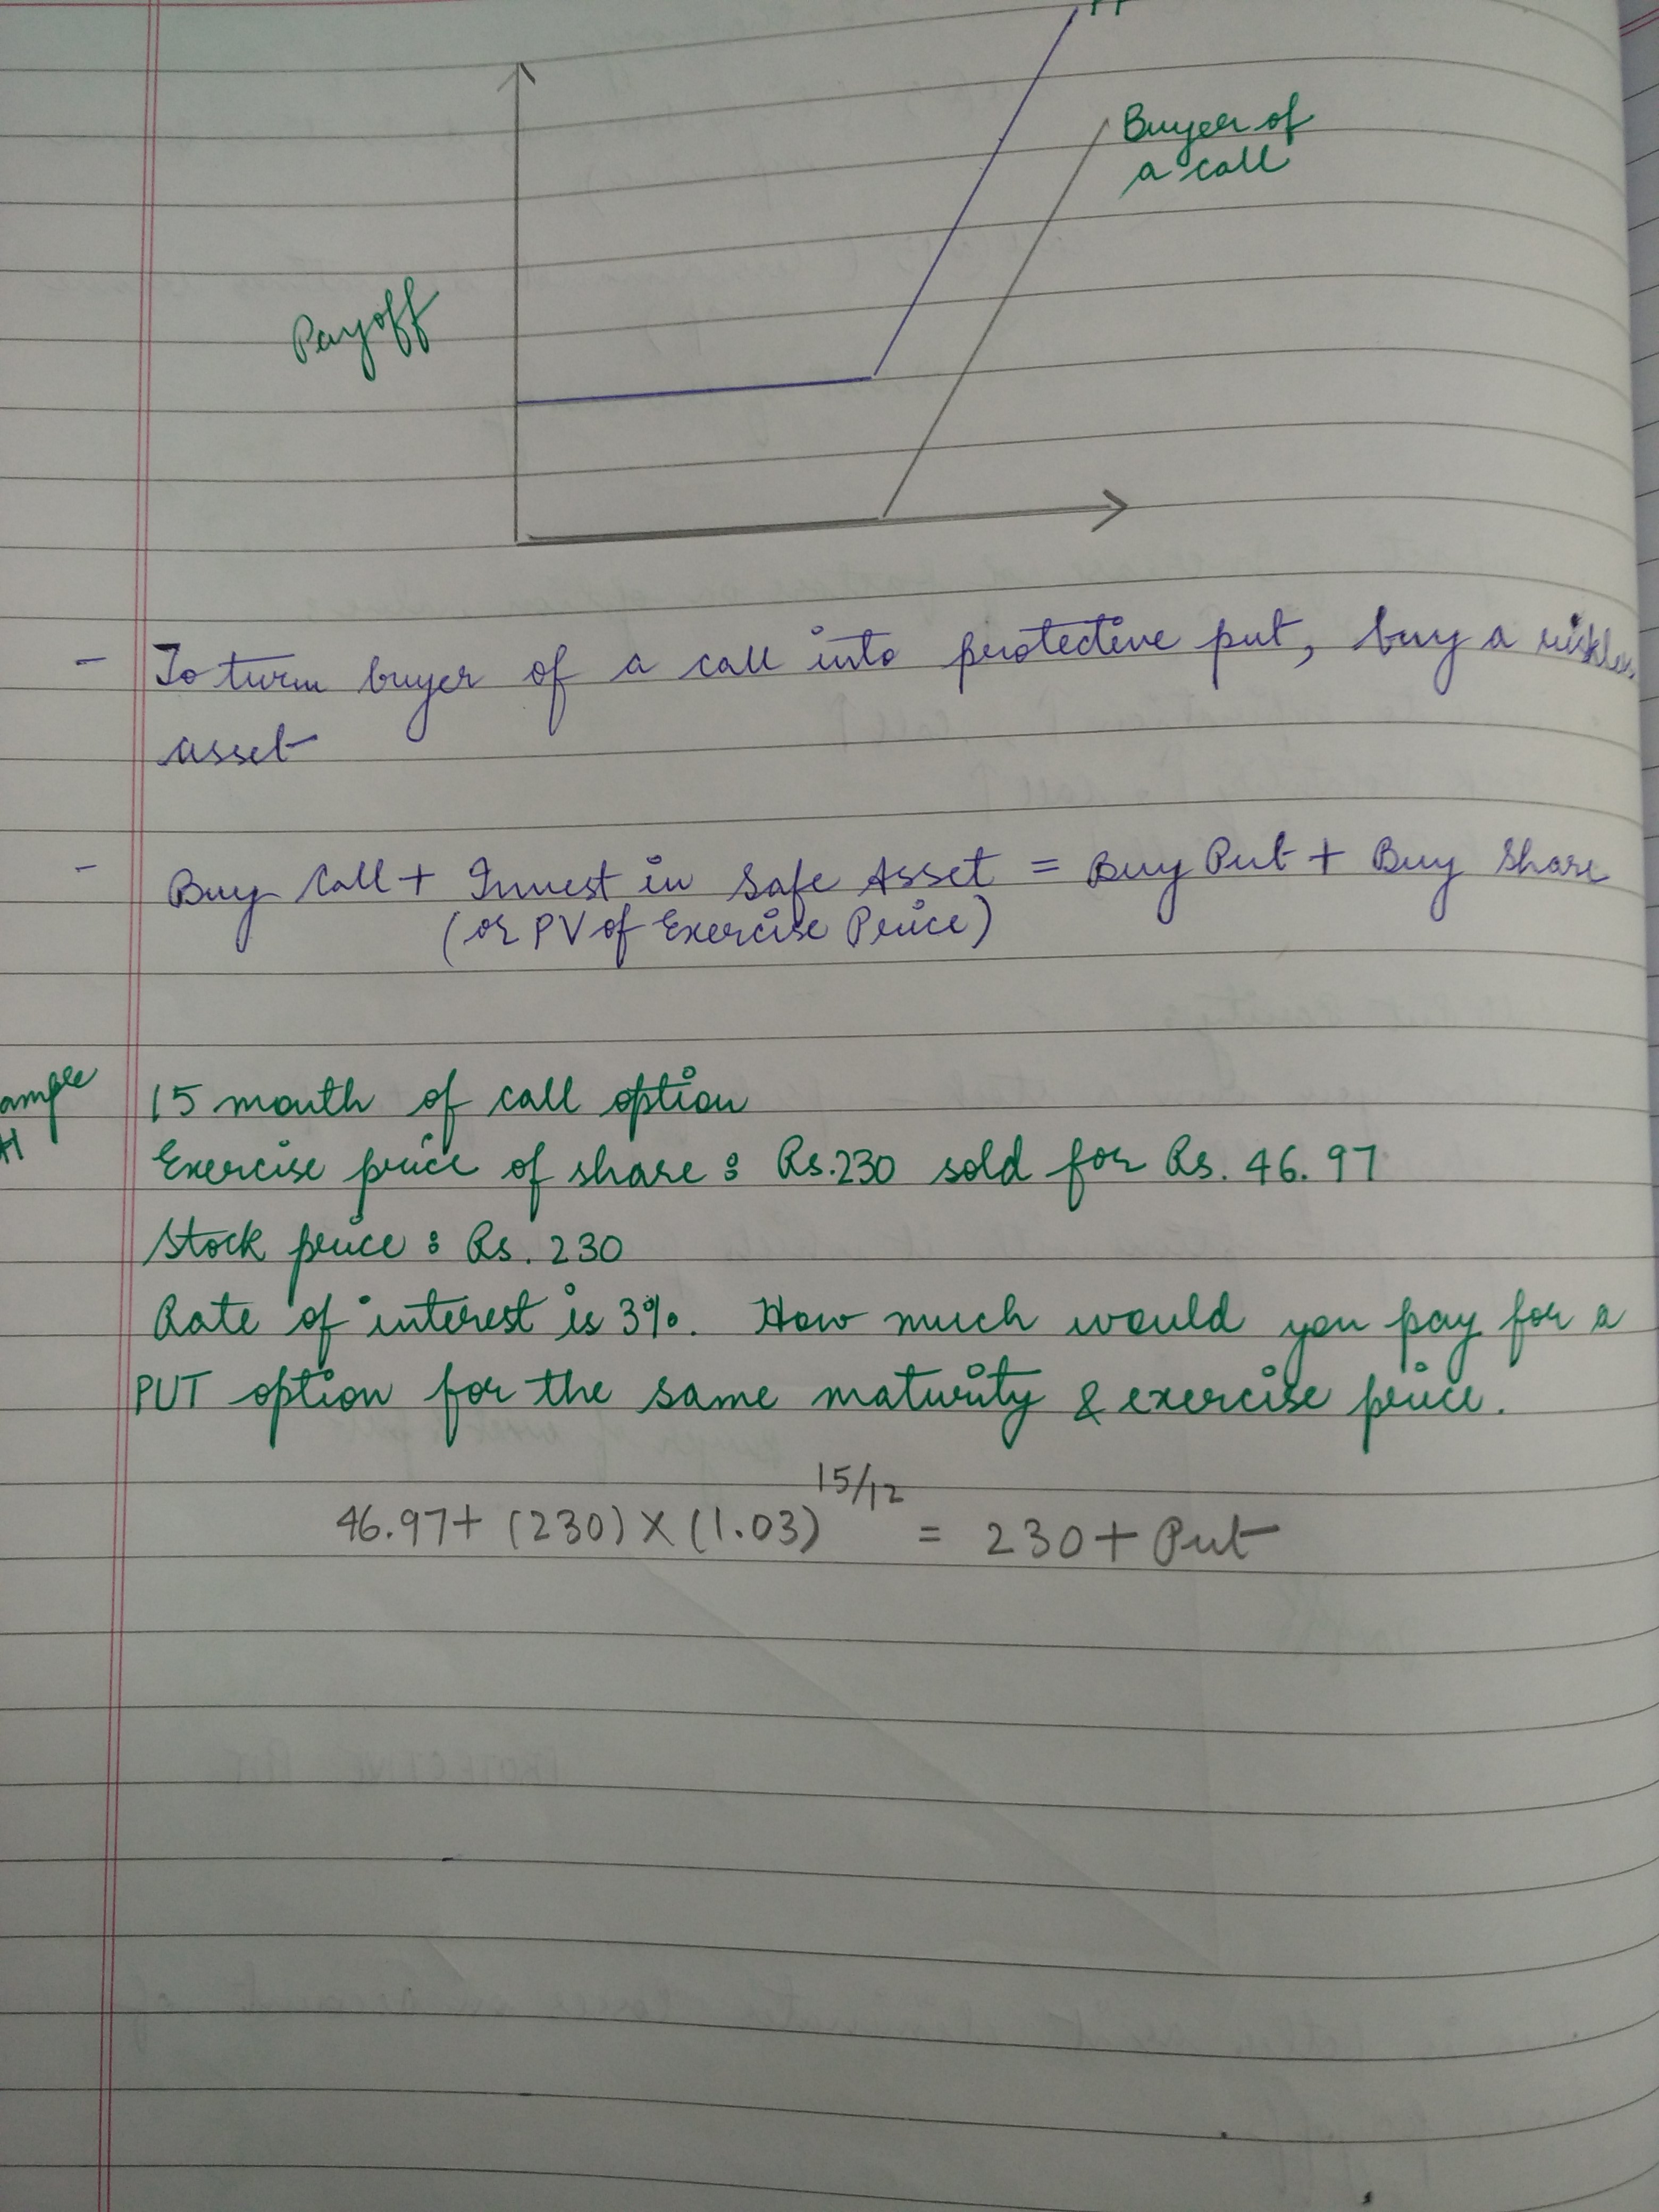 Buyer of
a call
Payoff
- To turn buyer of a call into protective put, buy a
asset
- Buy Call + Invest in Safe Asset = Buy Put + Buy Share
(or PV of Exercise Price)
15 month of call option
Exercise price of share : Rs.230 sold for Rs. 46.97
Stock price : Rs. 230
Rate of interest is 3%. How much would you pay for a
PUT option for the same maturity & exercise price.
46.97 + (230) × (1.03)^15/12 = 230 + Put